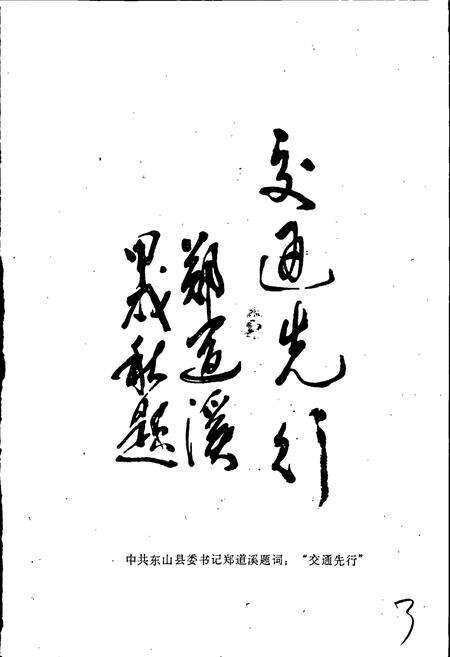 交通先行
郑道溪
甲戌秋题
中共东山县委书记郑道溪题词：“交通先行”
3